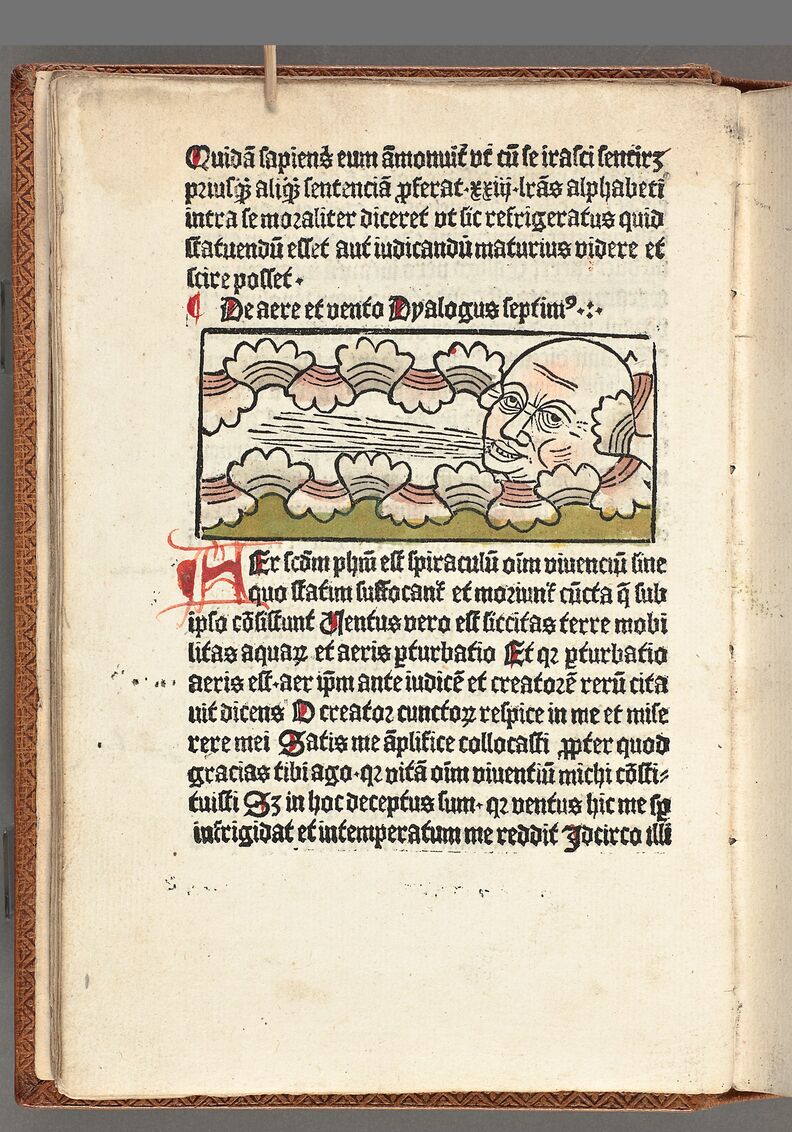 Quidā sapiens eum āmonuit̄ vt cū se irasci sentirꝫ
priusqꝫ aliqꝫ sentenciā ꝓferat·xxiij·lrās alphabeti
intra se moraliter diceret vt sic refrigeratus quid
statuendū esset aut iudicandū maturius videre et
scire posset·
¶ De aere et vento Dyalogus septimꝰ·:·
AEr scdm̄ phm̄ est spiraculū oīm viuenciū sine
quo statim suffocant̄ et moriunt̄ cūcta q̄ sub
ipso cōsistunt Ventus vero est siccitas terre mobi
litas aquaꝝ et aeris ꝑturbatio Et qꝛ ꝑturbatio
aeris est·aer ip̄m ante iudicē et creatorē rerū cita
uit dicens O creator cunctoꝝ respice in me et mise
rere mei Satis me āplifice collocasti ꝓpter quod
gracias tibi ago·qꝛ vitā oīm viuentiū michi cōsti⸗
tuisti Sꝫ in hoc deceptus sum·qꝛ ventus hic me sꝑ
infrigidat et intemperatum me reddit Jdcirco illi